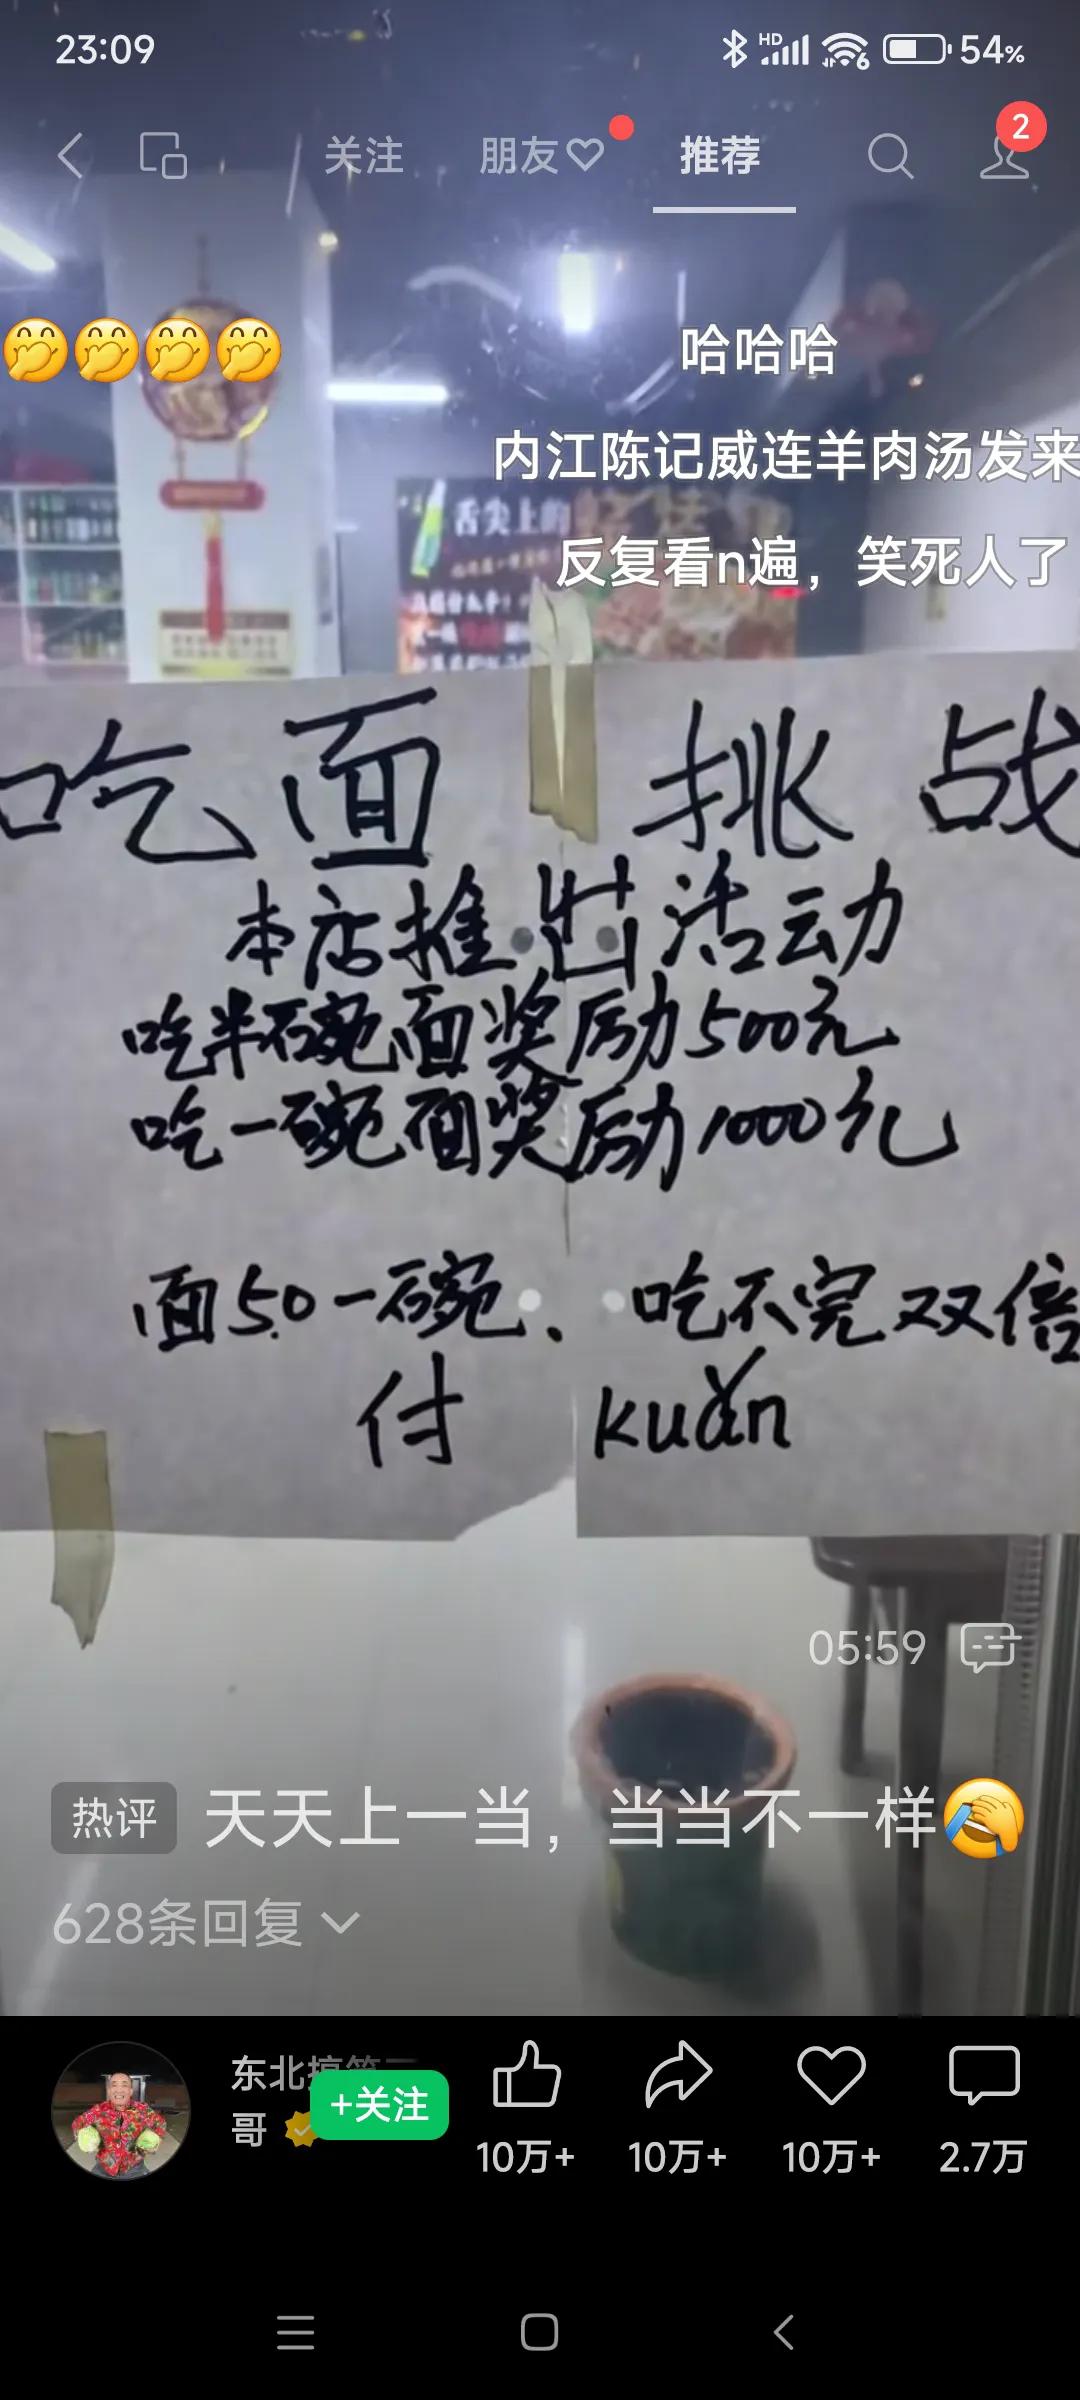 23:09
HD
6
54%
关注
朋友
推荐
2
哈哈哈
内江陈记威连羊肉汤发来
舌尖上的
反复看n遍，笑死人了
吃面 挑战
本店推出活动
吃半碗面奖励500元
吃一碗面奖励1000元
面5.0一碗、吃不完双倍
付 kuǎn
05:59
热评
天天上一当，当当不一样
628条回复
东北搞笑
哥
+关注
10万+
10万+
10万+
2.7万